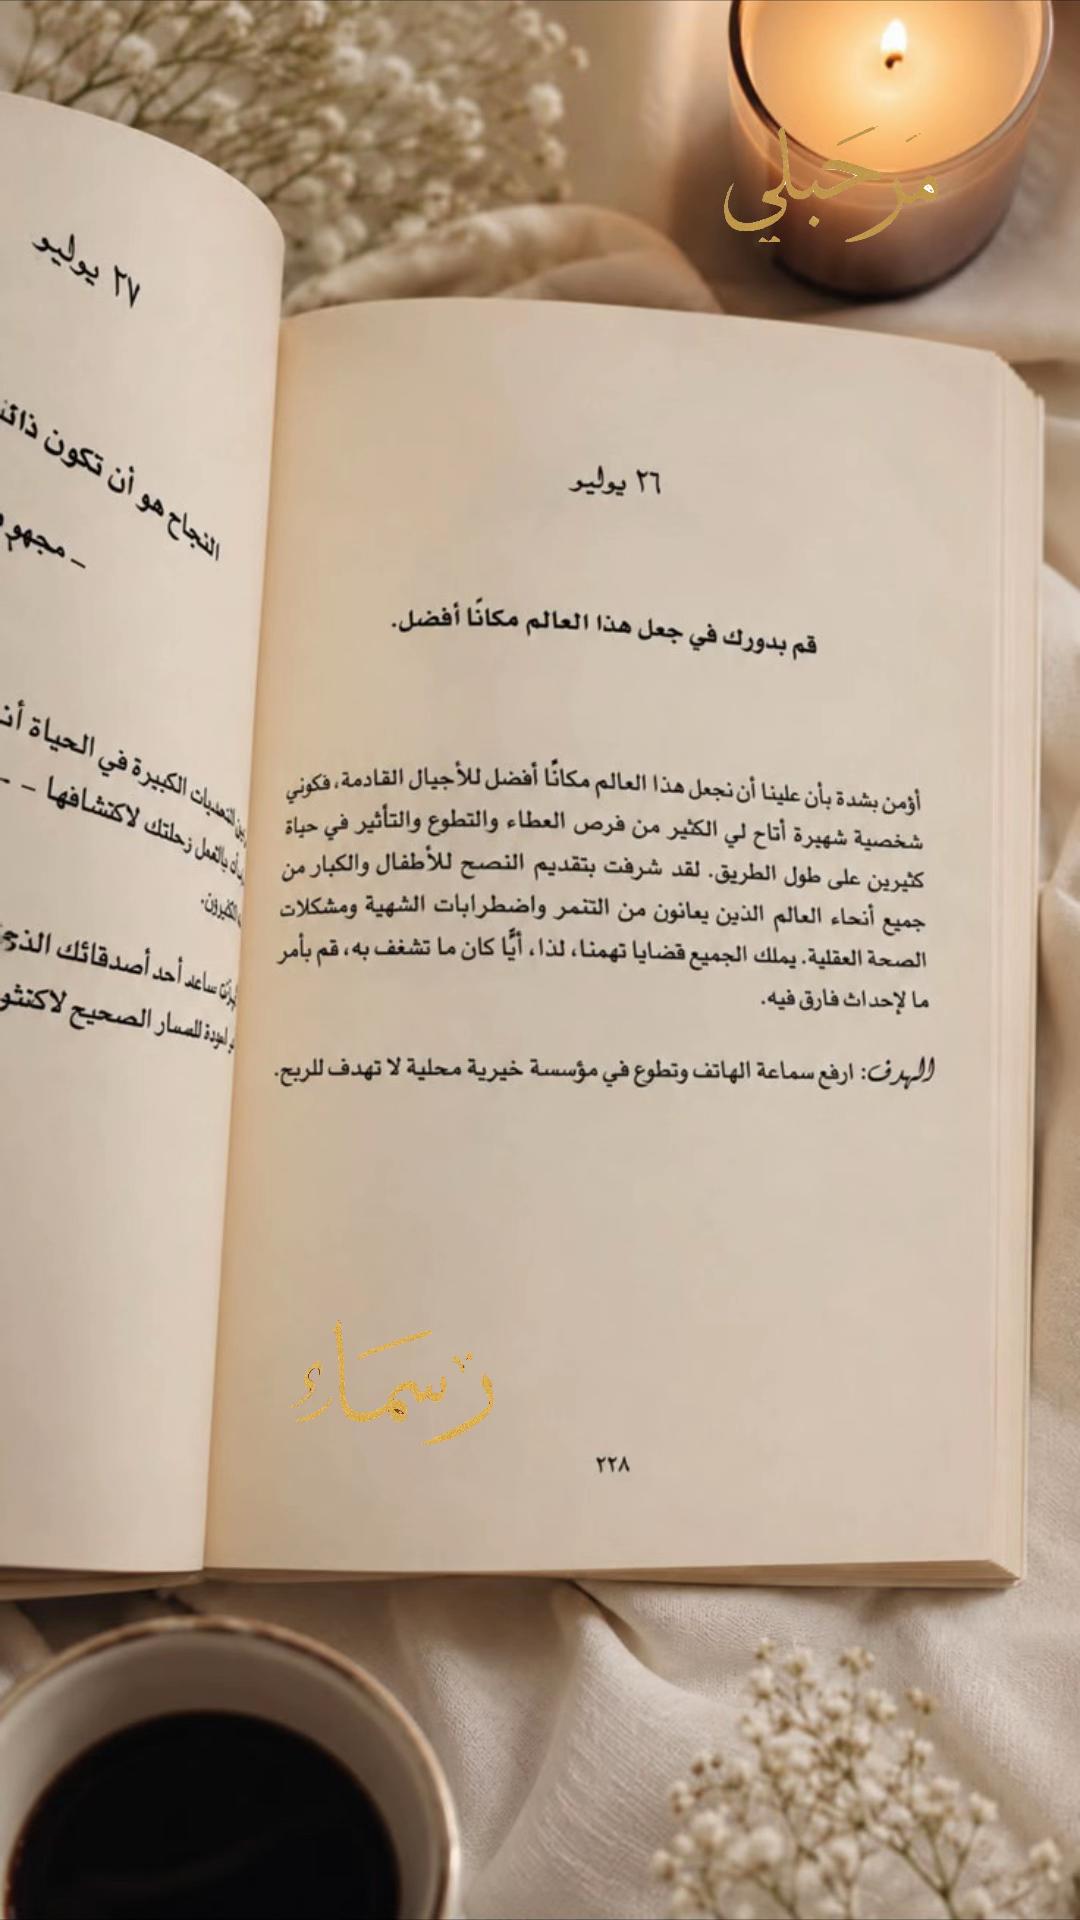 مَرحَبلي
٢٦ يوليو
قم بدورك في جعل هذا العالم مكانًا أفضل.
أؤمن بشدة بأن علينا أن نجعل هذا العالم مكانًا أفضل للأجيال القادمة، فكوني
شخصية شهيرة أتاح لي الكثير من فرص العطاء والتطوع والتأثير في حياة
كثيرين على طول الطريق. لقد شرفت بتقديم النصح للأطفال والكبار من
جميع أنحاء العالم الذين يعانون من التنمر واضطرابات الشهية ومشكلات
الصحة العقلية. يملك الجميع قضايا تهمنا، لذا، أيًّا كان ما تشغف به، قم بأمر
ما لإحداث فارق فيه.
الهدف: ارفع سماعة الهاتف وتطوع في مؤسسة خيرية محلية لا تهدف للربح.
٢٢٨
٢٧ يوليو
النجاح هو أن تكون
التحديات الكبيرة في الحياة
رحلتك لاكتشافها – –
ساعد أحد أصدقائك
للمسار الصحيح